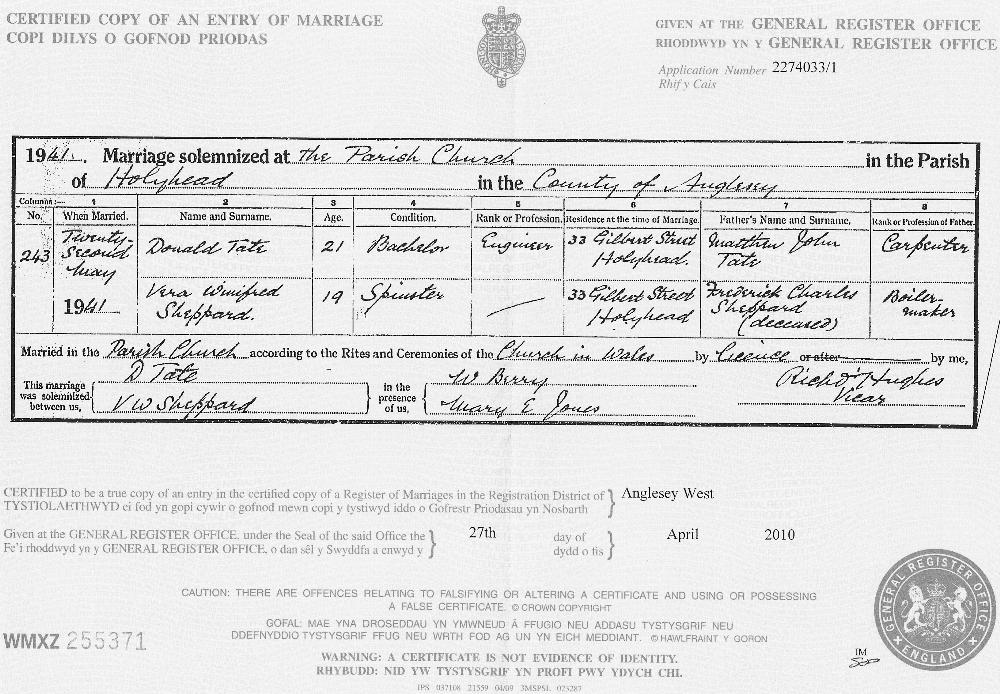 CERTIFIED COPY OF AN ENTRY OF MARRIAGE
COPI DILYS O GOFNOD PRIODAS
GIVEN AT THE GENERAL REGISTER OFFICE
RHODDWYD YN Y GENERAL REGISTER OFFICE
Application Number 2274033/1
Rhif y Cais
1941. Marriage solemnized at the Parish Church in the Parish
of Holyhead in the County of Anglesey
Columns:— 1 2 3 4 5 6 7 8
No. When Married. Name and Surname. Age. Condition. Rank or Profession. Residence at the time of Marriage. Father's Name and Surname. Rank or Profession of Father.
243 Twenty-Second May 1941
Donald Tate 21 Bachelor Engineer 33 Gilbert Street Holyhead. Matthew John Tate Carpenter
Vera Winifred Sheppard. 19 Spinster — 33 Gilbert Street Holyhead Frederick Charles Sheppard (deceased) Boiler-maker
Married in the Parish Church according to the Rites and Ceremonies of the Church in Wales by Licence or after by me,
This marriage was solemnized between us, D Tate
V W Sheppard
in the presence of us, W Berry
Mary E Jones
Richd Hughes
Vicar
CERTIFIED to be a true copy of an entry in the certified copy of a Register of Marriages in the Registration District of Anglesey West
TYSTIOLAETHWYD ei fod yn gopi cywir o gofnod mewn copi y tystiwyd iddo o Gofrestr Priodasau yn Nosbarth
Given at the GENERAL REGISTER OFFICE, under the Seal of the said Office the 27th day of April 2010
Fe'i rhoddwyd yn y GENERAL REGISTER OFFICE, o dan sêl y Swyddfa a enwyd y dydd o fis
CAUTION: THERE ARE OFFENCES RELATING TO FALSIFYING OR ALTERING A CERTIFICATE AND USING OR POSSESSING
A FALSE CERTIFICATE. © CROWN COPYRIGHT
GOFAL: MAE YNA DROSEDDAU YN YMWNEUD Â FFUGIO NEU ADDASU TYSTYSGRIF NEU
DDEFNYDDIO TYSTYSGRIF FFUG NEU WRTH FOD AG UN YN EICH MEDDIANT. © HAWLFRAINT Y GORON
WMXZ 255371
WARNING: A CERTIFICATE IS NOT EVIDENCE OF IDENTITY.
RHYBUDD: NID YW TYSTYSGRIF YN PROFI PWY YDYCH CHI.
IPS 037108 21559 04/09 3MSPSL 023287
GENERAL REGISTER OFFICE
ENGLAND
JM